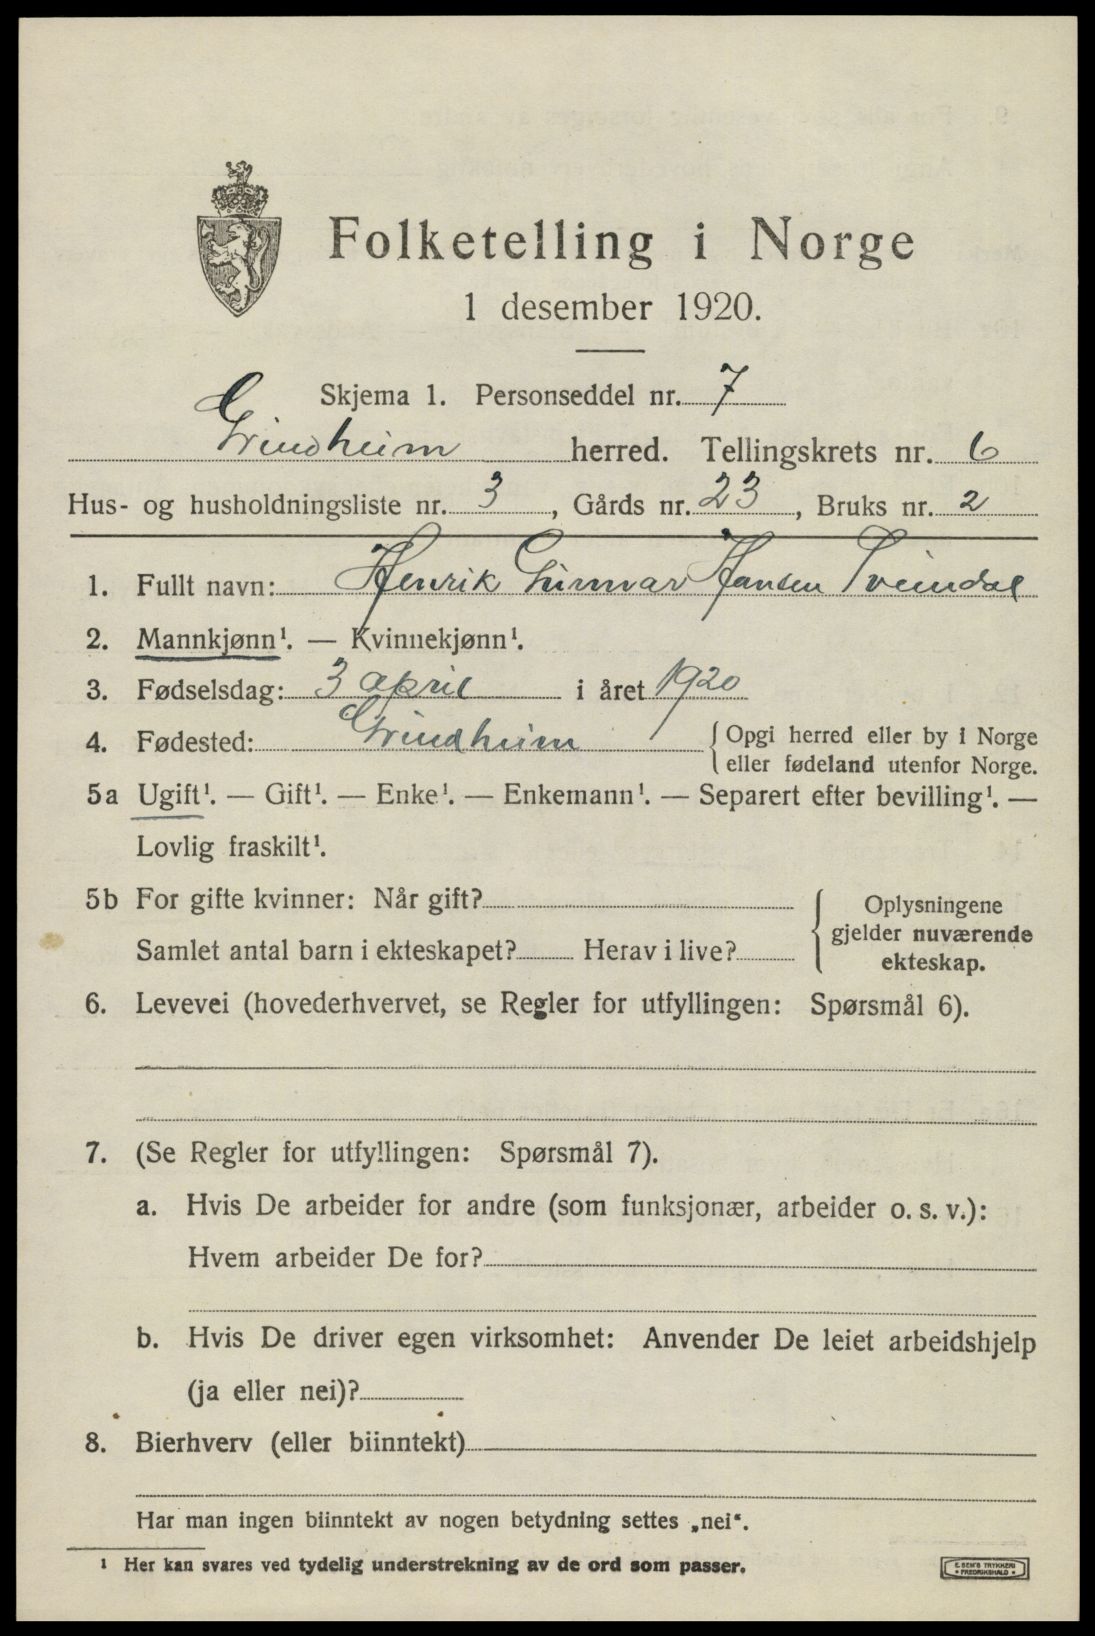 Folketelling i Norge
1 desember 1920.
Skjema 1. Personseddel nr. 7
Grindheim herred. Tellingskrets nr. 6
Hus- og husholdningsliste nr. 3, Gårds nr. 23, Bruks nr. 2
1. Fullt navn: Henrik Gunnar Hansen Tveindal
2. Mannkjønn¹. — Kvinnekjønn¹.
3. Fødselsdag: 3 april i året 1920
4. Fødested: Grindheim { Opgi herred eller by i Norge
eller fødeland utenfor Norge.
5a Ugift¹. — Gift¹. — Enke¹. — Enkemann¹. — Separert efter bevilling¹. —
Lovlig fraskilt¹.
5b For gifte kvinner: Når gift? { Oplysningene
gjelder nuværende
Samlet antal barn i ekteskapet? Herav i live?
ekteskap.
6. Levevei (hovederhvervet, se Regler for utfyllingen: Spørsmål 6).
7. (Se Regler for utfyllingen: Spørsmål 7).
a. Hvis De arbeider for andre (som funksjonær, arbeider o. s. v.):
Hvem arbeider De for?
b. Hvis De driver egen virksomhet: Anvender De leiet arbeidshjelp
(ja eller nei)?
8. Bierhverv (eller biinntekt)
Har man ingen biinntekt av nogen betydning settes „nei“.
¹ Her kan svares ved tydelig understrekning av de ord som passer.
E. SEM'S TRYKKERI
• FREDRIKSHALD •